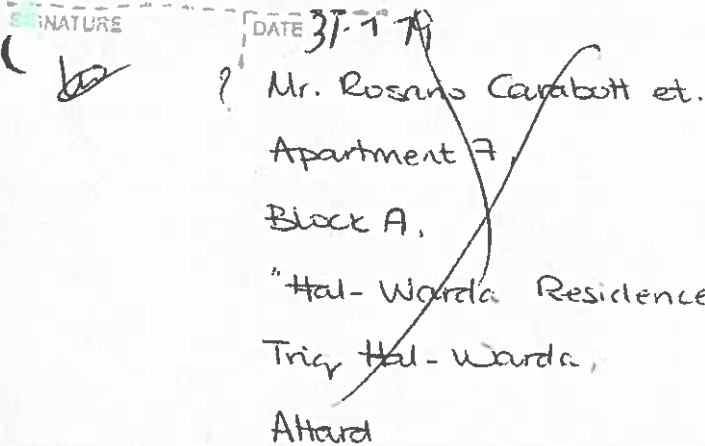 SIGNATURE
DATE 31-1-19
? Mr. Rosano Carabott et.
Apartment 7,
Block A,
"Hal-Warda Residence
Triq Hal-Warda,
Attard